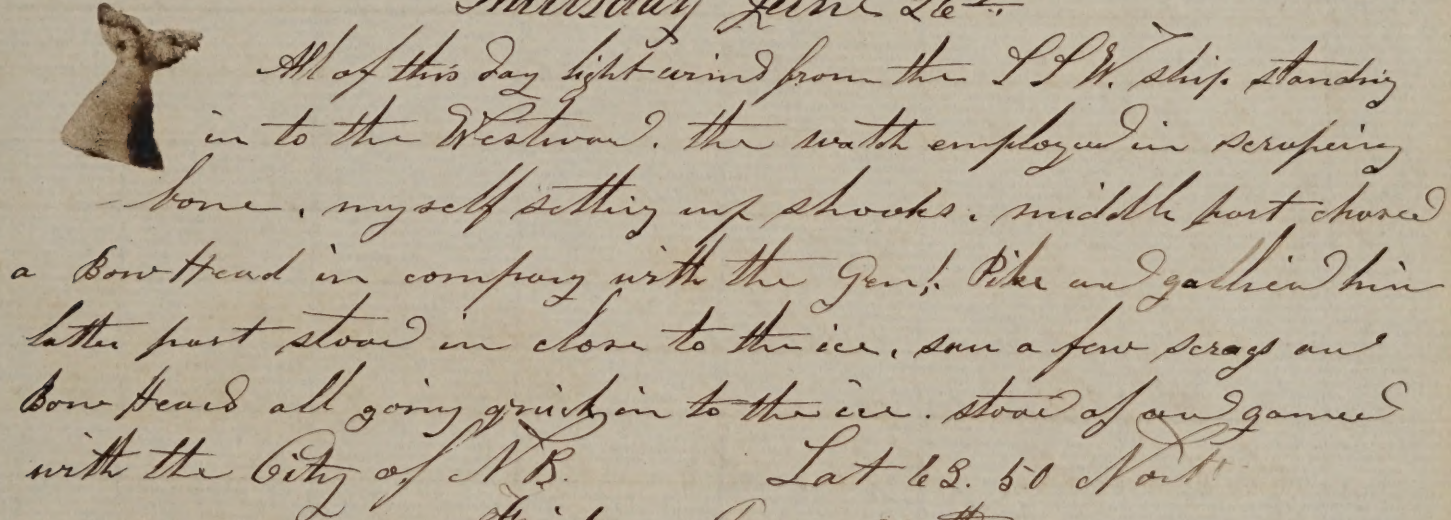 Thursday June 26th
All of this day light wind from the S S W. ship standing
in to the Westward. the watch employed in scrapeing
bone. myself setting up shooks. middle part chased
a Bow Head in company with the Genl. Pike and gallied him
latter part stood in close to the ice. saw a few scrags and
Bow Heads all going quick in to the ice. stood of and gamed
with the City of N B. Lat 63. 50 North